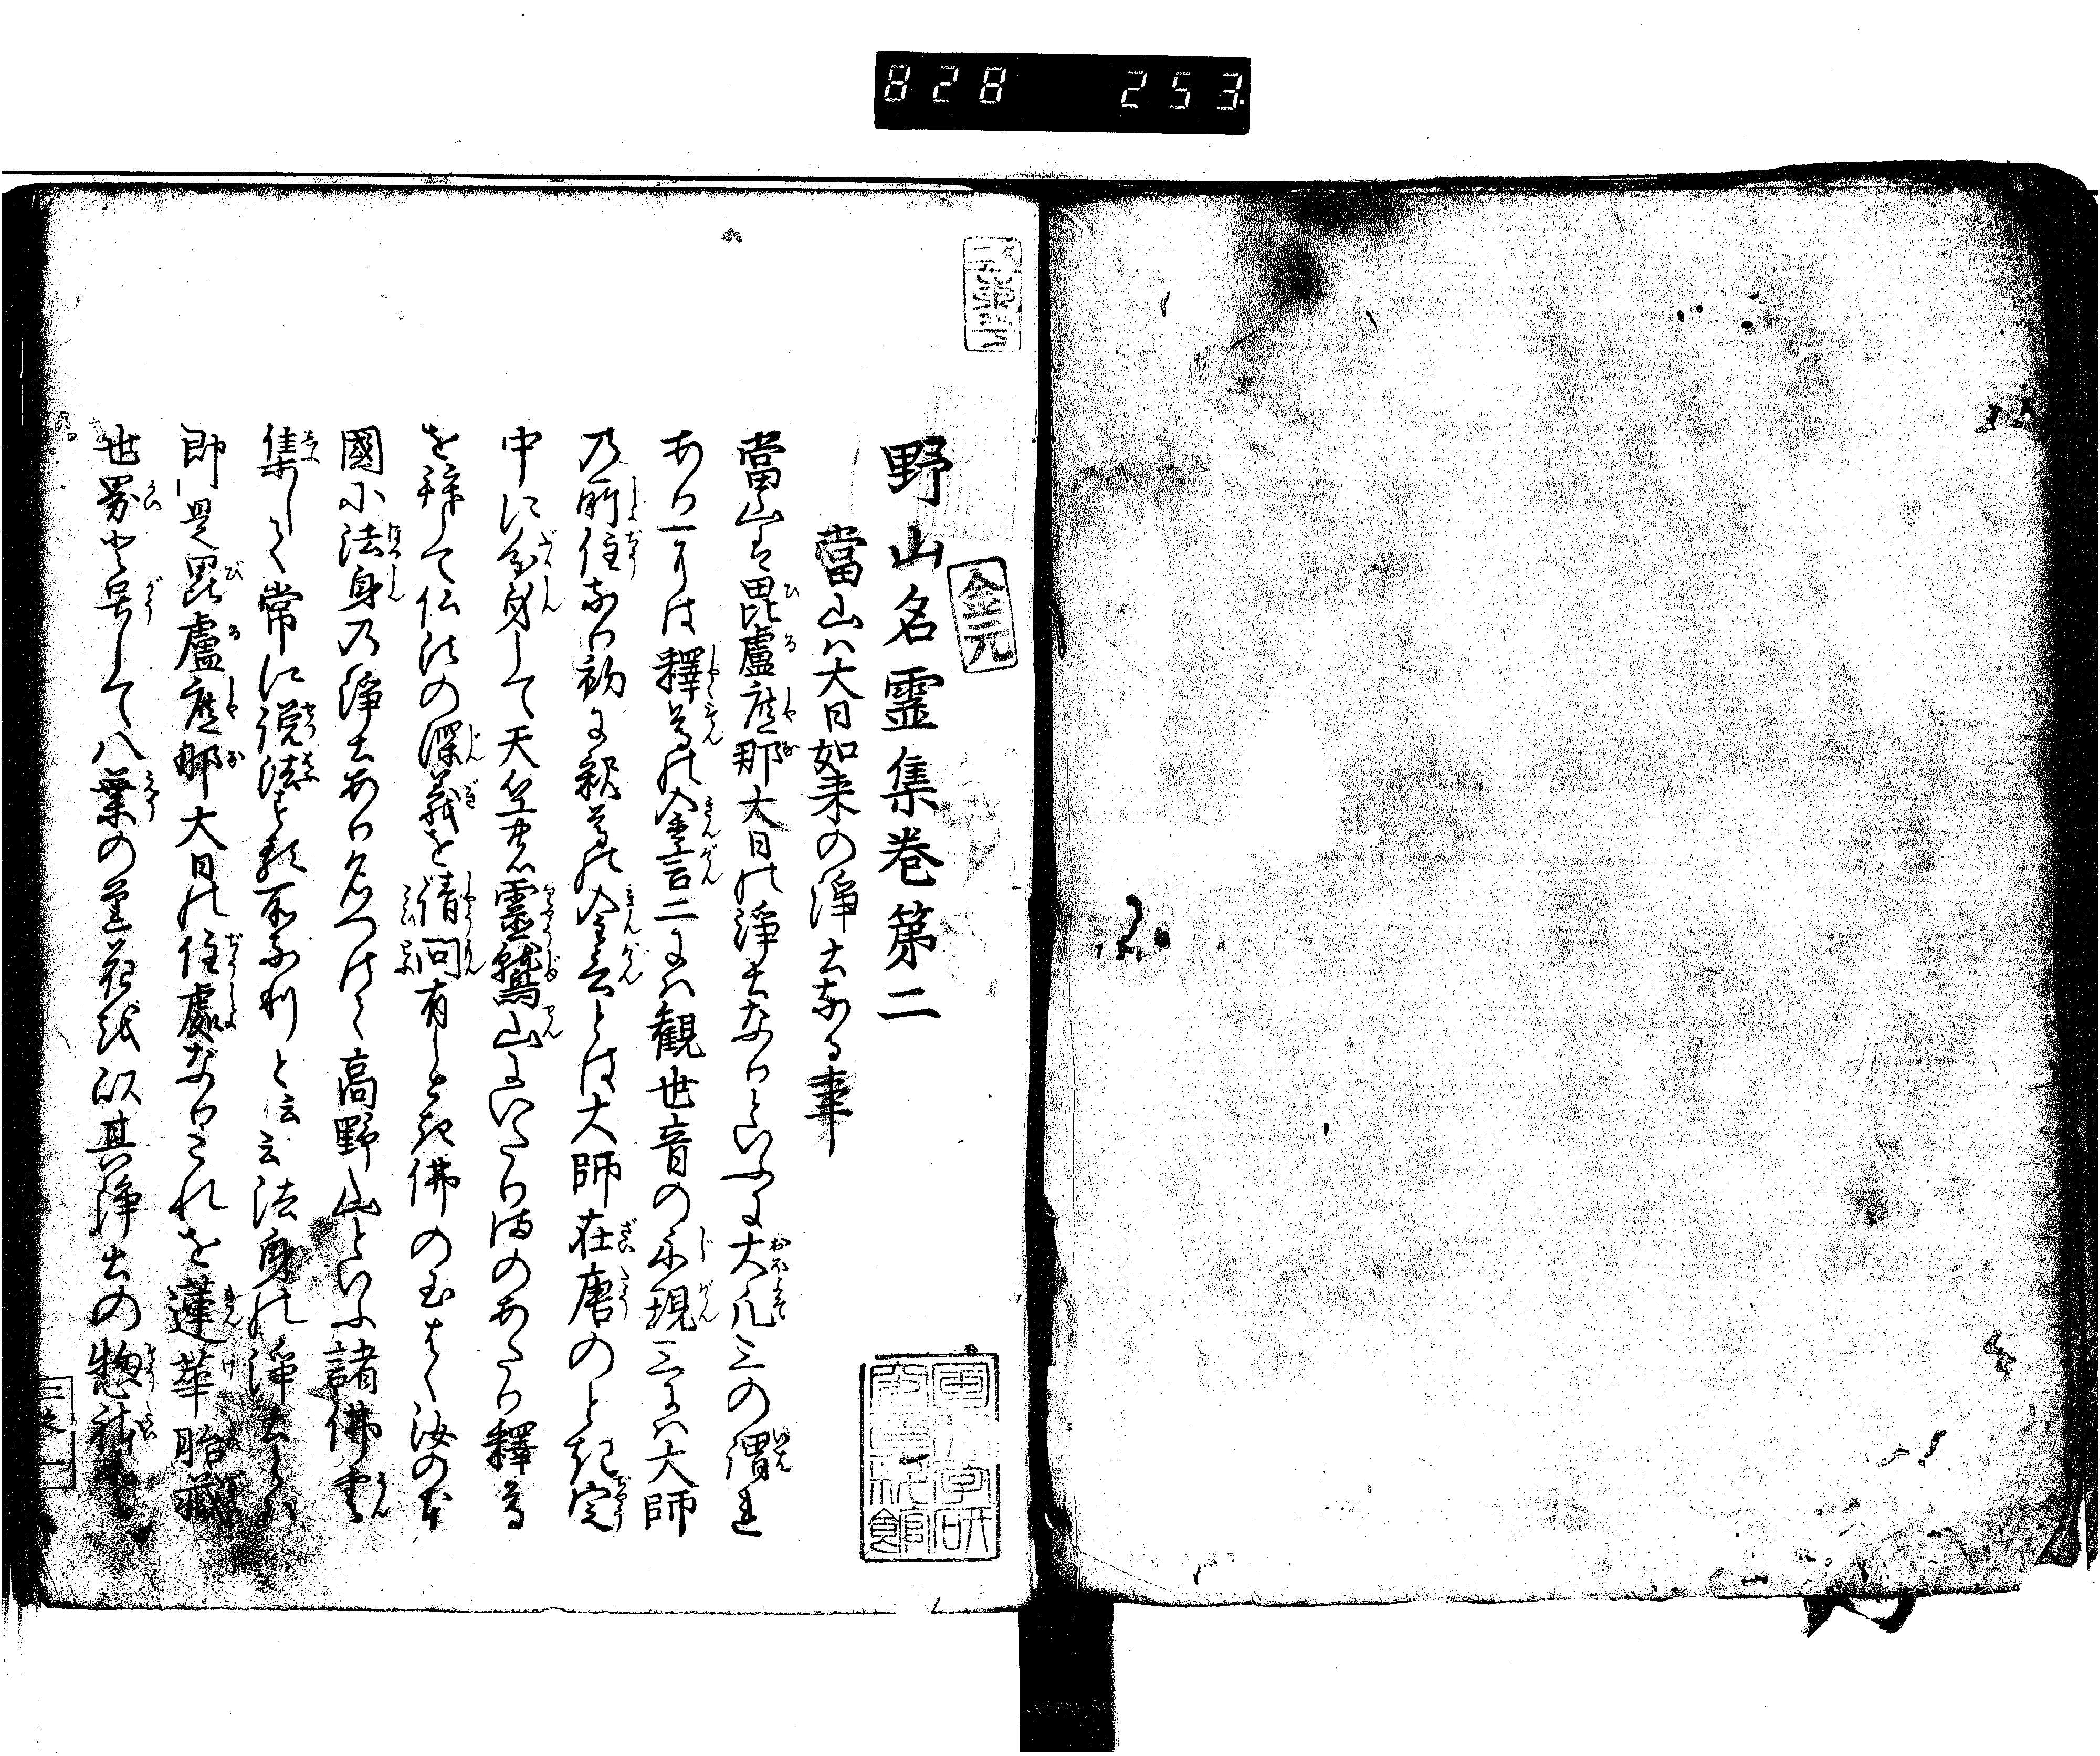 828 253
野山名霊集巻第二
當山ハ大日如来の浄土なる事
當山は毘盧遮那大日の浄土なりといふに大凡三の謂れ
あり一には釋尊の金言二には觀世音の示現三には大師
の所住なり初に釈尊の金言とは大師在唐のとき定
中に分身して天竺の霊鷲山にいたりまのあたり釋尊
を拝して仏法の深義を請問有しとき佛の玉はく汝の本
國に法身の浄土あり名つけて高野山といふ諸佛雲
集して常に説法し
と云云法身の浄土とハ
即是毘盧遮那大日の住處なりこれを蓮華胎藏
世界と号して八葉の蓮花を以其浄土の惣躰と
金元